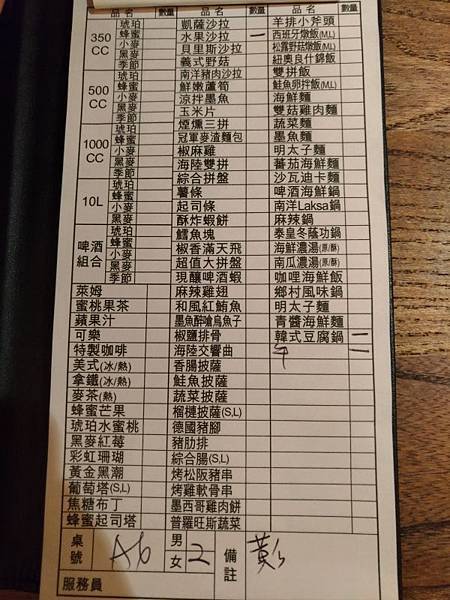 品名 數量 品名 數量 品名 數量
350 CC
琥珀
蜂蜜
小麥
黑麥
季節
500 CC
琥珀
蜂蜜
小麥
黑麥
季節
1000 CC
琥珀
蜂蜜
小麥
黑麥
季節
10L
琥珀
蜂蜜
小麥
黑麥
啤酒組合
琥珀
蜂蜜
小麥
黑麥
季節
萊姆
蜜桃果茶
蘋果汁
可樂
特製咖啡
美式(冰/熱)
拿鐵(冰/熱)
麥茶(熱)
蜂蜜芒果
琥珀水蜜桃
黑麥紅莓
彩虹珊瑚
黃金黑潮
葡萄塔(S,L)
焦糖布丁
蜂蜜起司塔
凱薩沙拉
水果沙拉 一
貝里斯沙拉
義式野菇
南洋豬肉沙拉
鮮嫩蘆筍
涼拌墨魚
玉米片
煙燻三拼
冠軍麥渣麵包
椒麻雞
海陸雙拼
綜合拼盤
薯條
起司條
酥炸蝦餅
鱈魚塊
椒香滿天飛
超值大拼盤
現釀啤酒蝦
麻辣雞翅
和風紅鮪魚
墨魚醉嗆烏魚子
椒鹽排骨
海陸交響曲
香腸披薩
鮭魚披薩
蔬菜披薩
榴槤披薩(S,L)
德國豬腳
豬肋排
綜合腸(S,L)
烤松阪豬串
烤雞軟骨串
墨西哥雞肉餅
普羅旺斯蔬菜
羊排小斧頭
西班牙燉飯(M,L)
松露野菇燉飯(M,L)
紐奧良什錦飯
雙拼飯
鮭魚卵拌飯(M,L)
海鮮麵
雙菇雞肉麵
蔬菜麵
墨魚麵
明太子麵
蕃茄海鮮麵
沙瓦迪卡麵
啤酒海鮮鍋
南洋Laksa鍋
麻辣鍋
泰皇冬蔭功鍋
海鮮濃湯(原/酥)
南瓜濃湯(原/酥)
咖哩海鮮飯
鄉村風味鍋
明太子麵
青醬海鮮麵
韓式豆腐鍋 二
牛 二
桌號 A6 男 女 2 備註
服務員